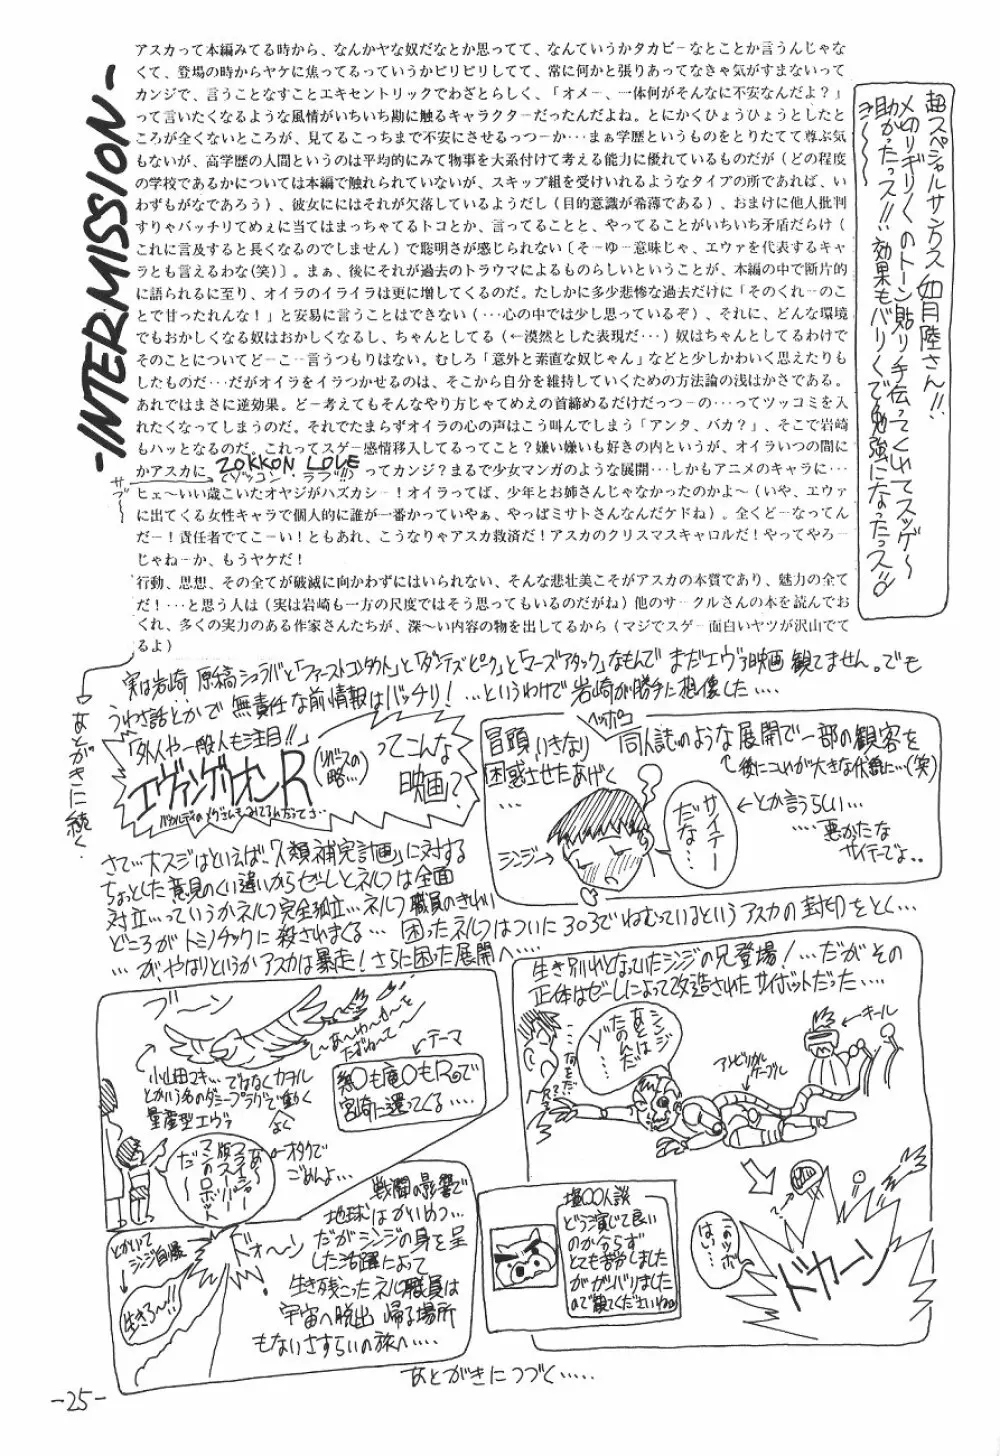 -INTERMISSION-
アスカって本編みてる時から、なんかヤな奴だなとか思ってて、なんていうかタカビーなとことか言うんじゃな
くて、登場の時からヤケに焦ってるっていうかピリピリしてて、常に何かと張りあってなきゃ気がすまないって
カンジで、言うことなすことエキセントリックでわざとらしく、「オメー、一体何がそんなに不安なんだよ？」
って言いたくなるような風情がいちいち勘に触るキャラクターだったんだよね。とにかくひょうひょうとしたと
ころが全くないところが、見てるこっちまで不安にさせるっつーか…まぁ学歴というものをとりたてて尊ぶ気
もないが、高学歴の人間というのは平均的にみて物事を大系付けて考える能力に優れているものだが（どの程度
の学校であるかについては本編で触れられていないが、スキップ組を受けいれるようなタイプの所であれば、い
わずもがなであろう）、彼女ににはそれが欠落しているようだし（目的意識が希薄である）、おまけに他人批判
すりゃバッチリてめぇに当てはまっちゃてるトコとか、言ってることと、やってることがいちいち矛盾だらけ（
これに言及すると長くなるのでしません）で聡明さが感じられない〔そーゆー意味じゃ、エヴァを代表するキャ
ラとも言えるわな(笑)〕。まぁ、後にそれが過去のトラウマによるものらしいということが、本編の中で断片的
に語られるに至り、オイラのイライラは更に増してくるのだ。たしかに多少悲惨な過去だけに「そのくれーのこ
とで甘ったれんな！」と安易に言うことはできない（…心の中では少し思っているぞ）、それに、どんな環境
でもおかしくなる奴はおかしくなるし、ちゃんとしてる（←漠然とした表現だ…）奴はちゃんとしてるわけで
そのことについてどーこー言うつもりはない。むしろ「意外と素直な奴じゃん」などと少しかわいく思えたりも
したものだ…だがオイラをイラつかせるのは、そこから自分を維持していくための方法論の浅はかさである。
あれではまさに逆効果。どー考えてもそんなやり方じゃてめえの首締めるだけだっつーの…ってツッコミを入
れたくなってしまうのだ。それでたまらずオイラの心の声はこう叫んでしまう「アンタ、バカ？」、そこで岩崎
もハッとなるのだ、これってスゲー感情移入してるってこと？嫌い嫌いも好きの内というが、オイラいつの間に
かアスカに ZOKKON LOVE ってカンジ？まるで少女マンガのような展開…しかもアニメのキャラに…
(ゾッコン・ラブ!!)
サブ〜
ヒェ〜いい歳こいたオヤジがハズカシー！オイラってば、少年とお姉さんじゃなかったのかよ〜（いや、エヴァ
に出てくる女性キャラで個人的に誰が一番かっていやぁ、やっぱミサトさんなんだケドね）。全くどーなってん
だー！責任者でてこーい！ともあれ、こうなりゃアスカ救済だ！アスカのクリスマスキャロルだ！やってやろー
じゃねーか、もうヤケだ！
行動、思想、その全てが破滅に向かわずにはいられない、そんな悲壮美こそがアスカの本質であり、魅力の全て
だ！…と思う人は（実は岩崎も一方の尺度ではそう思ってもいるのだがね）他のサークルさんの本を読んでお
くれ、多くの実力のある作家さんたちが、深〜い内容の物を出してるから（マジでスゲー面白いヤツが沢山でて
るよ）
→あとがきに続く
超スペシャルサンクス 如月陸さん!!
〆切りギリギリのトーン貼り手伝ってくれてスッゲ〜
助かったっス!! 効果もバリバリで勉強になったっス!!
実は岩崎 原稿シュラバと「ファーストコンタクト」と「ダンテズ・ピーク」と「マーズアタック」なもんで まだエヴァ映画観てません。でも
うわさ話とかで 無責任な前情報はバッチリ！…というわけで岩崎が勝手に想像した….
「外人や一般人も注目!!」
エヴァンゲリオンR
(リバースの略…)
ってこんな
映画？
冒頭いきなり ヘッポコ 同人誌のような展開で一部の観客を
困惑させたあげく
…
↳後にコレが大きな伏線に…(笑)
シンジ→
サイテーだな…
←とか言うらしい…
….悪かたな
サイテーでよ..
さて…大スジはといえば、「人類補完計画」に対する
ちょっとした意見のくい違いからゼーレとネルフは全面
対立…っていうかネルフ完全孤立…ネルフ職員のきれい
どころがトミノチックに殺されまくる… 困ったネルフはついに303でねむっているというアスカの封印をとく…
…が、やはりというかアスカは暴走！さらに困った展開へ….
ブーン
し〜あ〜わ〜せ〜と
たずね〜て〜
小山田マキ…ではなくカヲル
とかいう名のダミープラグで動く
量産型エヴァ
←テーマ
宮崎に還ってくる….
あ〜
フライシャー
版スーパー
マンのロボット
だ〜
←オタクで
ごめんよ…
とかいて
シンジ自爆
生きろ〜!!
ドォ〜ン
戦闘の影響で
地球はかいめつ…
だがシンジの身を呈
した活躍によって
生き残ったネルフ職員は
宇宙へ脱出 帰る場所
もないさすらいの旅へ….
生き別れとなっていたシンジの兄登場！…だがその
正体はゼーレによって改造されたサイボットだった….
シンジ
あとは
たのんだ
ゾ…
なにをだ…
←キール
アンビリカル
ケーブル
このツボ
はい…
ドカーン
塩〇〇人談
どう演じて良い
のか分らず
とても苦労しました
がガンバリました
ので観てくださいね
あとがきにつづく…..
-25-